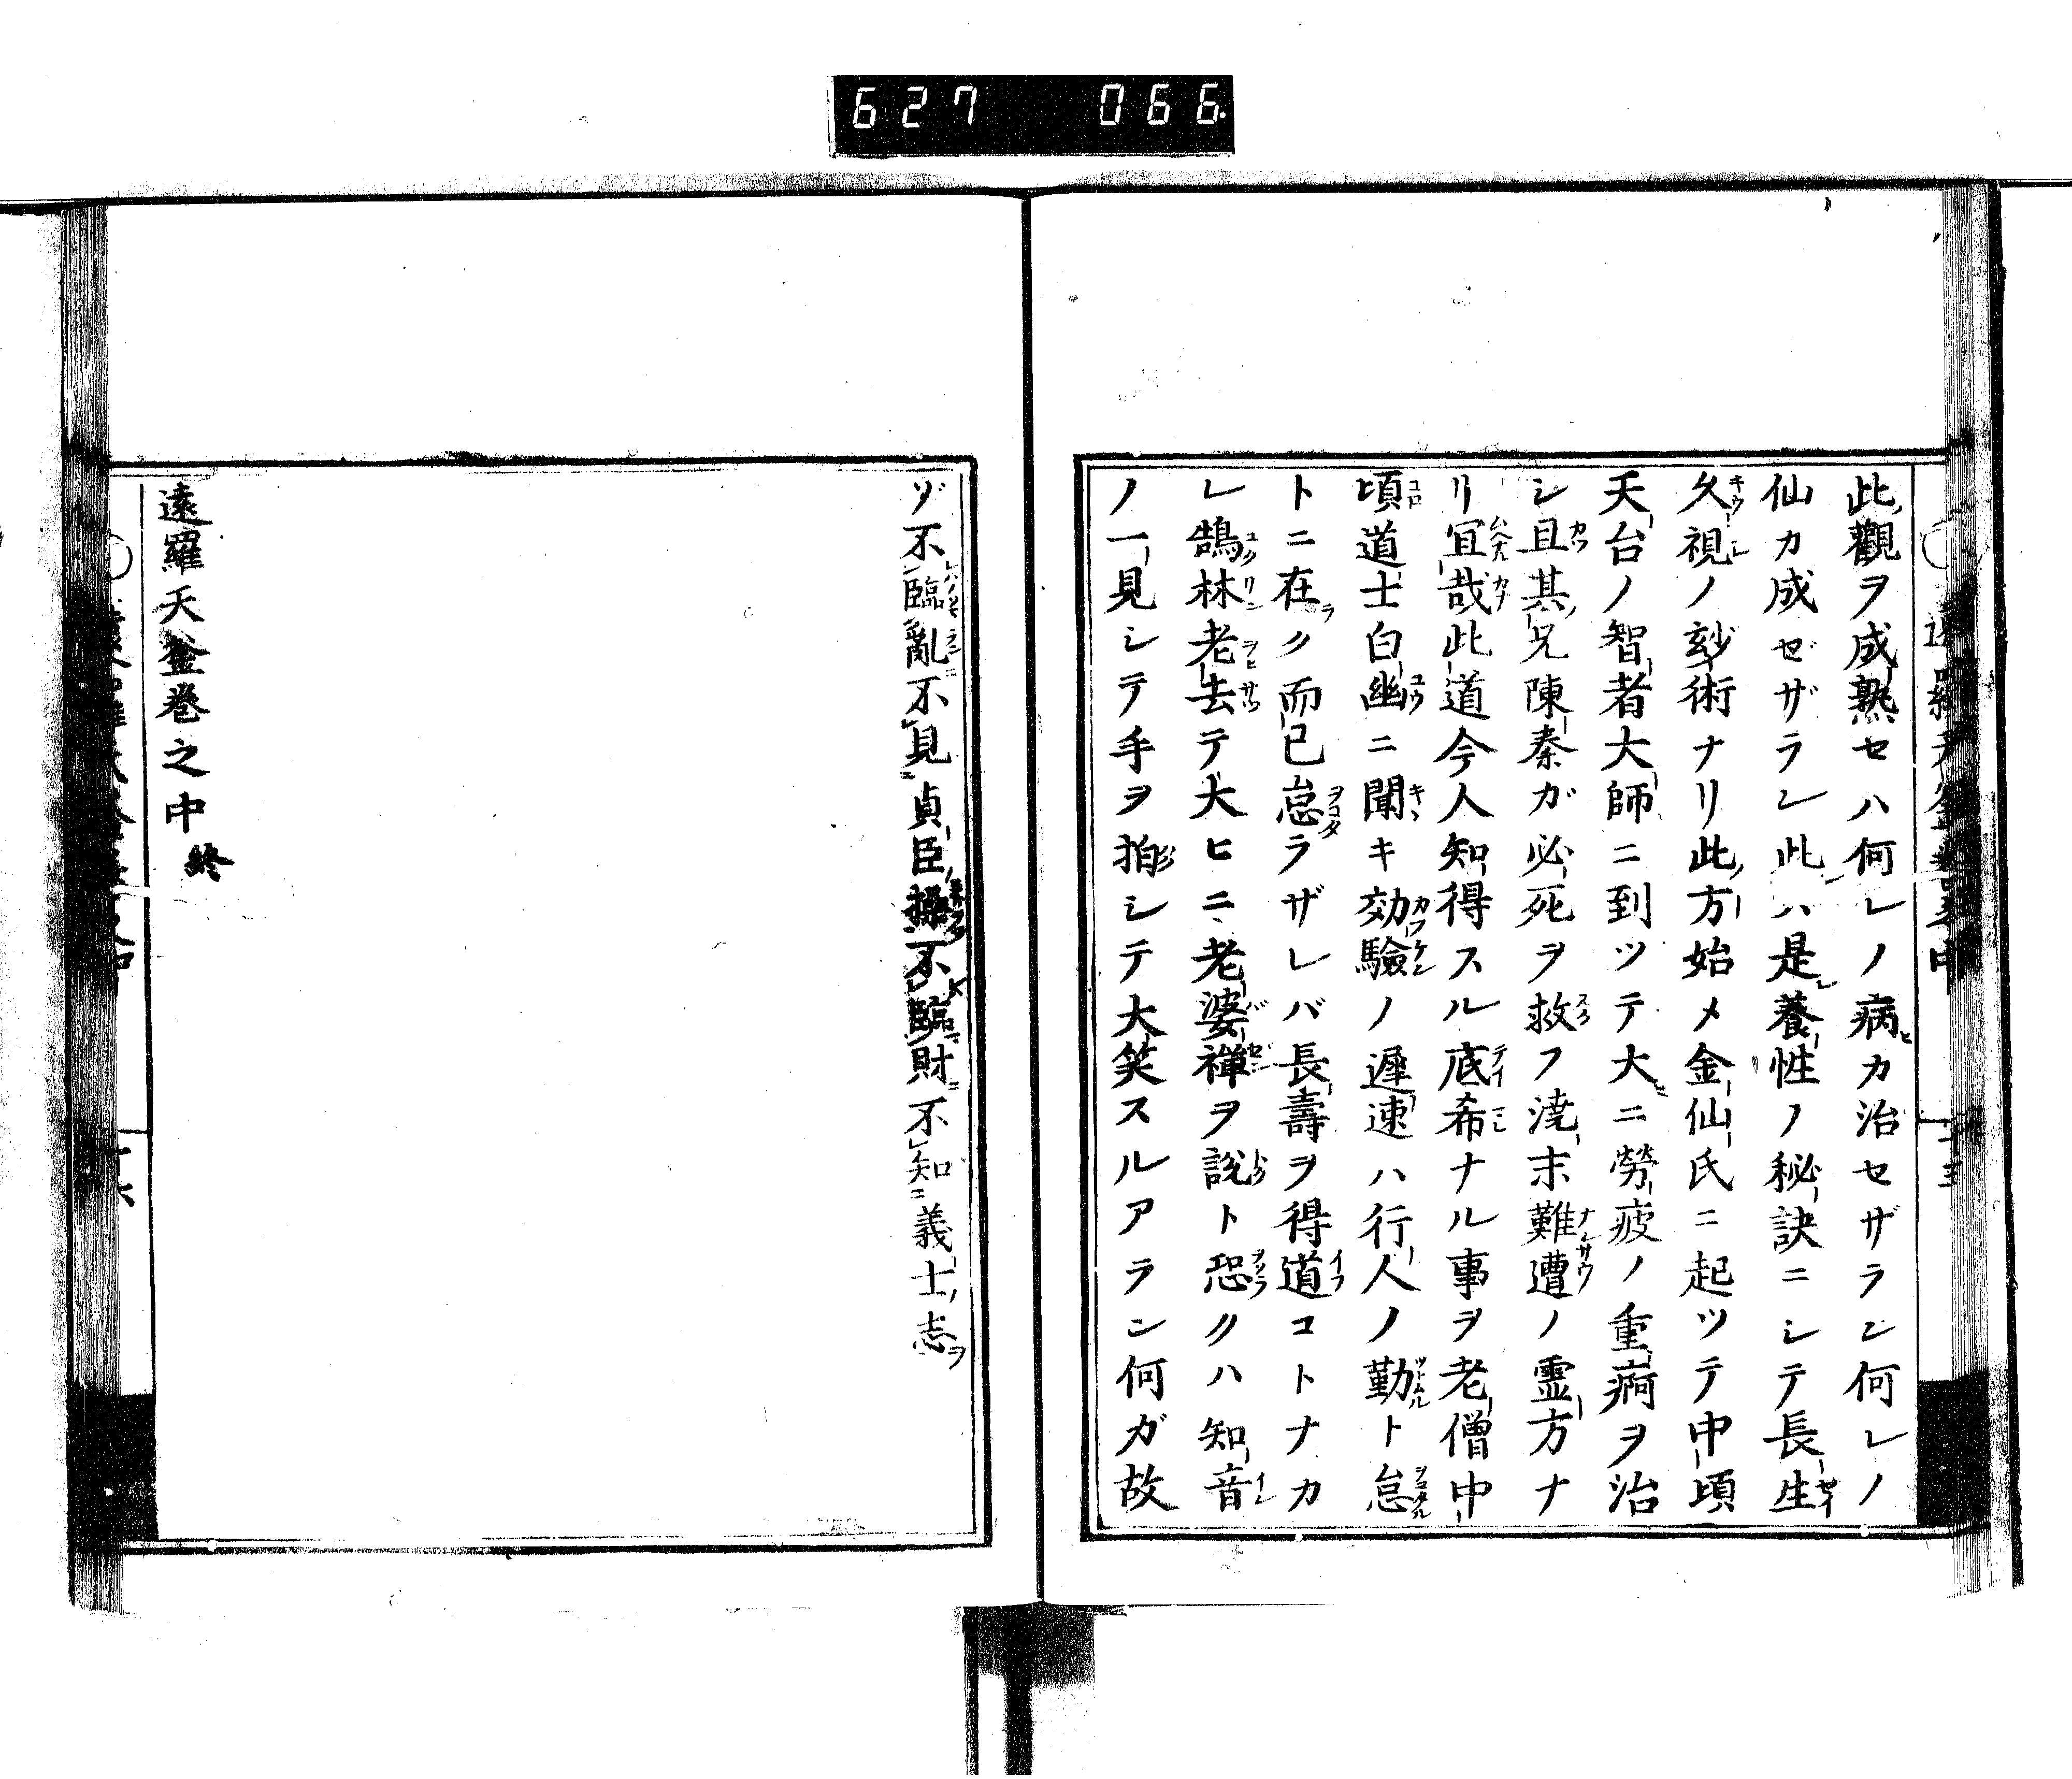 627 066
此觀ヲ成熟セハ何レノ病カ治セザラン何レノ
仙カ成ゼザラン此ハ是養性ノ秘訣ニシテ長生
久視ノ玅術ナリ此方始メ金仙氏ニ起ツテ中頃
天台ノ智者大師ニ到ツテ大ニ勞疲ノ重痾ヲ治
シ且其兄陳秦ガ必死ヲ救フ澆末難遭ノ霊方ナ
リ宜哉此道今人知得スル底希ナル事ヲ老僧中
頃道士白幽ニ聞キ効驗ノ遲速ハ行人ノ勤ト怠
トニ在ク而已怠ラザレバ長壽ヲ得道コトナカ
レ鵠林老去テ大ヒニ老婆禪ヲ説ト恐クハ知音
ノ一見シテ手ヲ拍シテ大笑スルアラン何ガ故
ゾ不臨亂不見貞臣操不臨財不知義士志
遠羅天釜巻之中 終